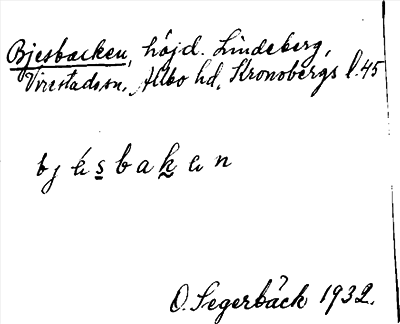 Bjesbacken, höjd. Lindeberg,
Virestads sn, Allbo hd, Kronobergs l. 45
O. Segerbäck 1932.